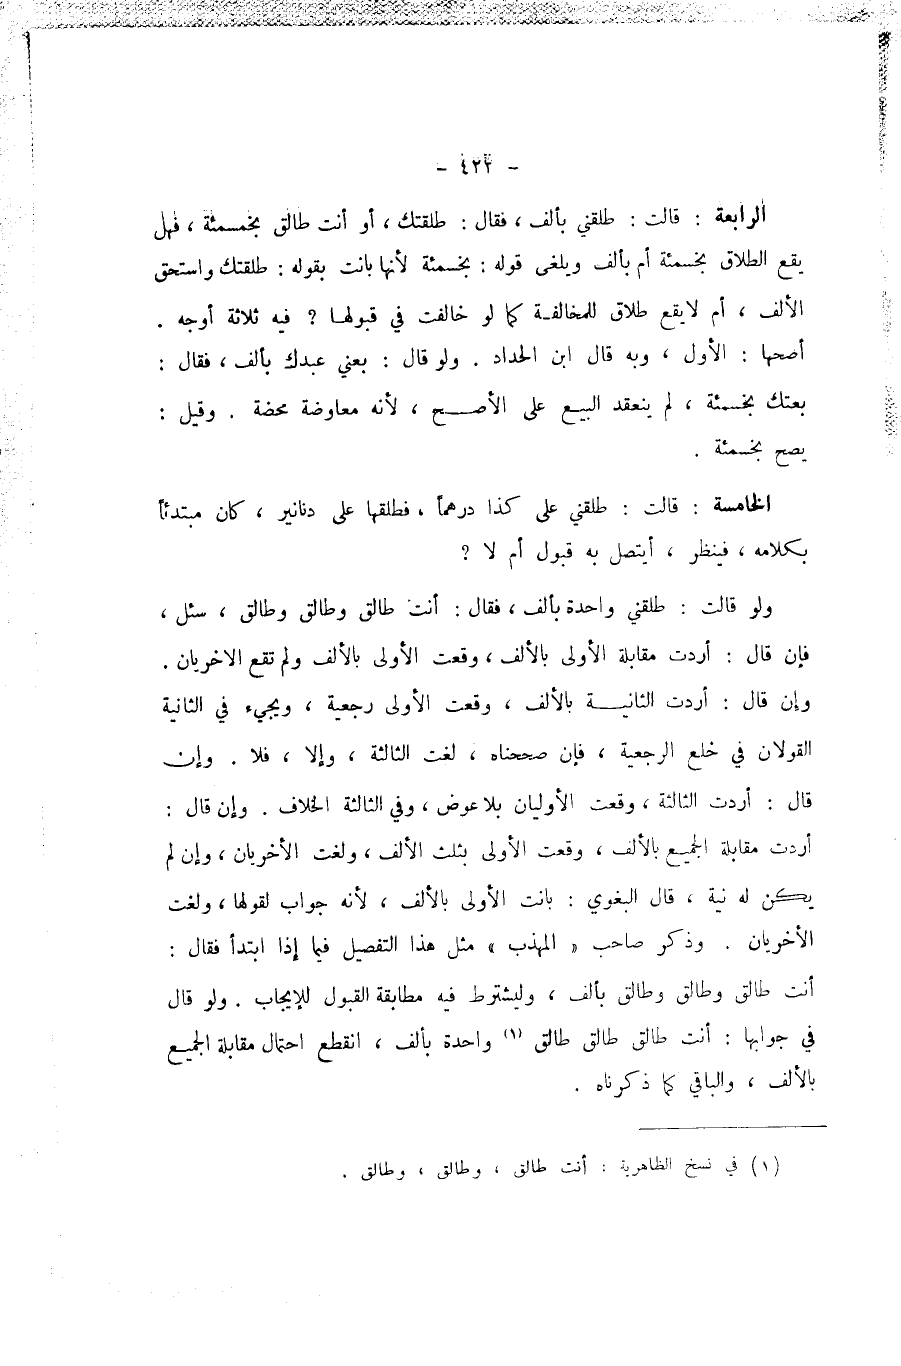 - ٤٢٢ -
الرابعة : قالت : طلقني بألف ، فقال : طلقتك ، أو أنت طالق بخمسمئة ، فهل
يقع الطلاق بخمسمئة أم بألف ويلغى قوله : بخمسمئة لأنها بانت بقوله : طلقتك واستحق
الألف ، أم لايقع طلاق للمخالفـة كما لو خالفت في قبولهـا ? فيه ثلاثة أوجه .
أصحها : الأول ، وبه قال ابن الحداد . ولو قال : بعني عبدك بألف ، فقال :
بعتك بخمسمئة ، لم ينعقد البيـع على الأصـــح ، لأنه معاوضة محضة . وقيل :
يصح بخمسمئة .
الخامسة : قالت : طلقني على كذا درهماً ، فطلقها على دنانير ، كان مبتدئاً
بكلامه ، فينظر ، أيتصل به قبول أم لا ?
ولو قالت : طلقني واحدة بألف ، فقال : أنت طالق وطالق وطالق ، سئل ،
فإن قال : أردت مقابلة الأولى بالألف ، وقعت الأولى بالألف ولم تقع الاخريان .
وإن قال : أردت الثانيـــة بالألف ، وقعت الأولى رجعية ، ويجيء في الثانية
القولان في خلع الرجعية ، فإن صححناه ، لغت الثالثة ، وإلا ، فلا . وإن
قال : أردت الثالثة ، وقعت الأوليان بلا عوض ، وفي الثالثة الخلاف . وإن قال :
أردت مقابلة الجميع بالألف ، وقعت الأولى بثلث الألف ، ولغت الأخريان ، وإن لم
يكن له نية ، قال البغوي : بانت الأولى بالألف ، لأنه جواب لقولها ، ولغت
الأخريان . وذكر صاحب « المهذب » مثل هذا التفصيل فيما إذا ابتدأ فقال :
أنت طالق وطالق وطالق بألف ، وليشترط فيه مطابقة القبول للإيجاب . ولو قال
في جوابها : أنت طالق طالق طالق (١) واحدة بألف ، انقطع احتمال مقابلة الجميع
بالألف ، والباقي كما ذكرناه .
(١) في نسخ الظاهرية : أنت طالق ، وطالق ، وطالق .